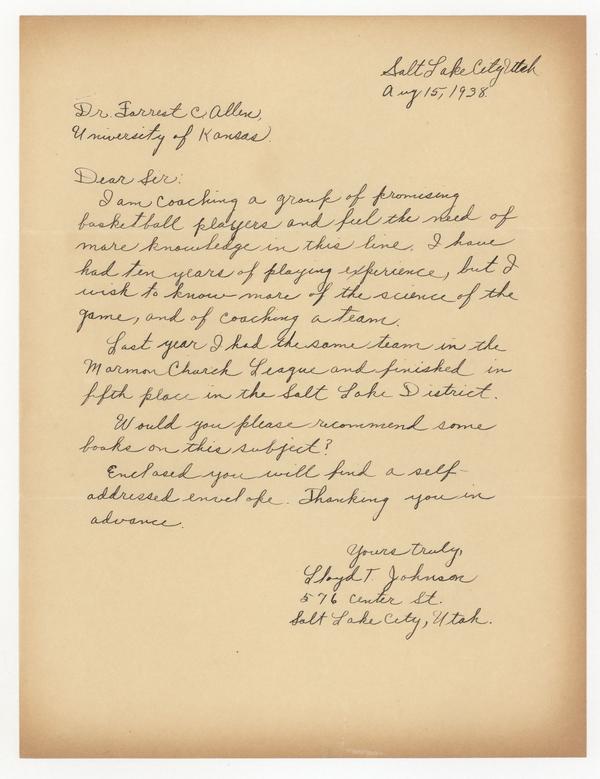 Salt Lake City, Utah
Aug 15, 1938.
Dr. Forrest C. Allen,
University of Kansas.
Dear Sir:
I am coaching a group of promising
basketball players and feel the need of
more knowledge in this line. I have
had ten years of playing experience, but I
wish to know more of the science of the
game, and of coaching a team.
Last year I had the same team in the
Mormon Church League and finished in
fifth place in the Salt Lake District.
Would you please recommend some
books on this subject?
Enclosed you will find a self-
addressed envelope. Thanking you in
advance.
Yours truly,
Lloyd T. Johnson
576 Center St.
Salt Lake City, Utah.